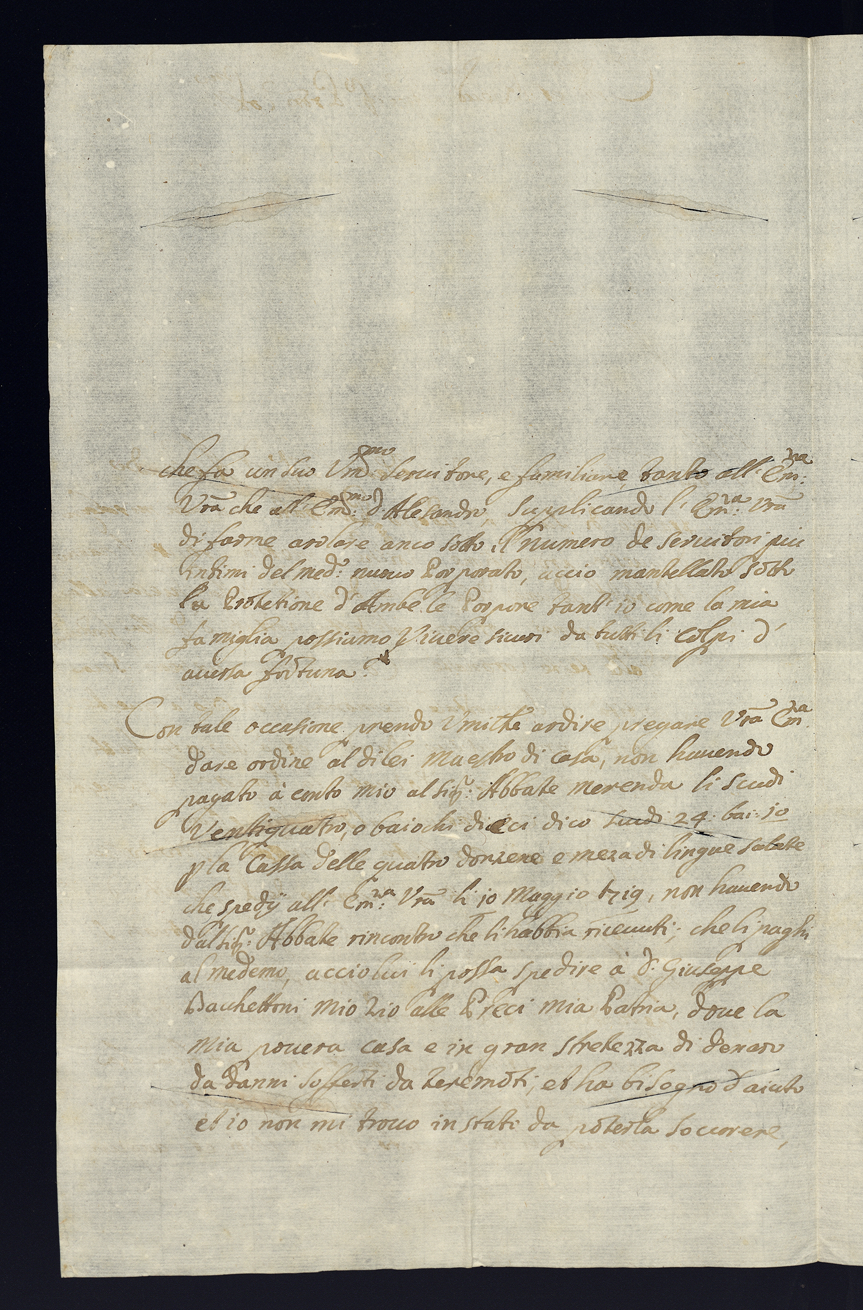 che fà un suo Vm:mo Servitore, e familiare tanto all' Em:za
Vr̃a che all' Em:mo d'Alesandro, Supplicando l' Em:za Vr̃a
di farme arolare anco sotto il Numero de Servitori piu
intimi del med:o nuovo Porporato, accio mantellato sotto
la Protetione d'Ambe le Porpore tant' io come la mia
famiglia possiamo Vivere sicuri da tutti li colpi d'
aversa fortuna.
Con tale occasione prendo Vmil.te ardire pregare Vr̃a Em:za
dare ordine al di lei Maestro di casa, non havendo
pagato à conto mio al Sig:r Abbate Merenda li scudi
Ventiquatro, e baiochi dieci dico scudi 24: bai: 10
p la Cassa delle quatro donzene e meza di lingue salate
che spedij all' Em:za Vr̃a li 10 Maggio 1719, non havendo
dal Sig:r Abbate rincontro che li habbia ricevuti; che li paghi
al medemo, accio lui li possa spedire à D: Giuseppe
Bacchettoni mio Zio alle Preci mia Patria, dove la
mia povera casa e in gran stretezza di denaro
da danni sofferti da teremoti, et ha bisogno d'aiuto
et io non mi trovo in stato da poterla socorere,